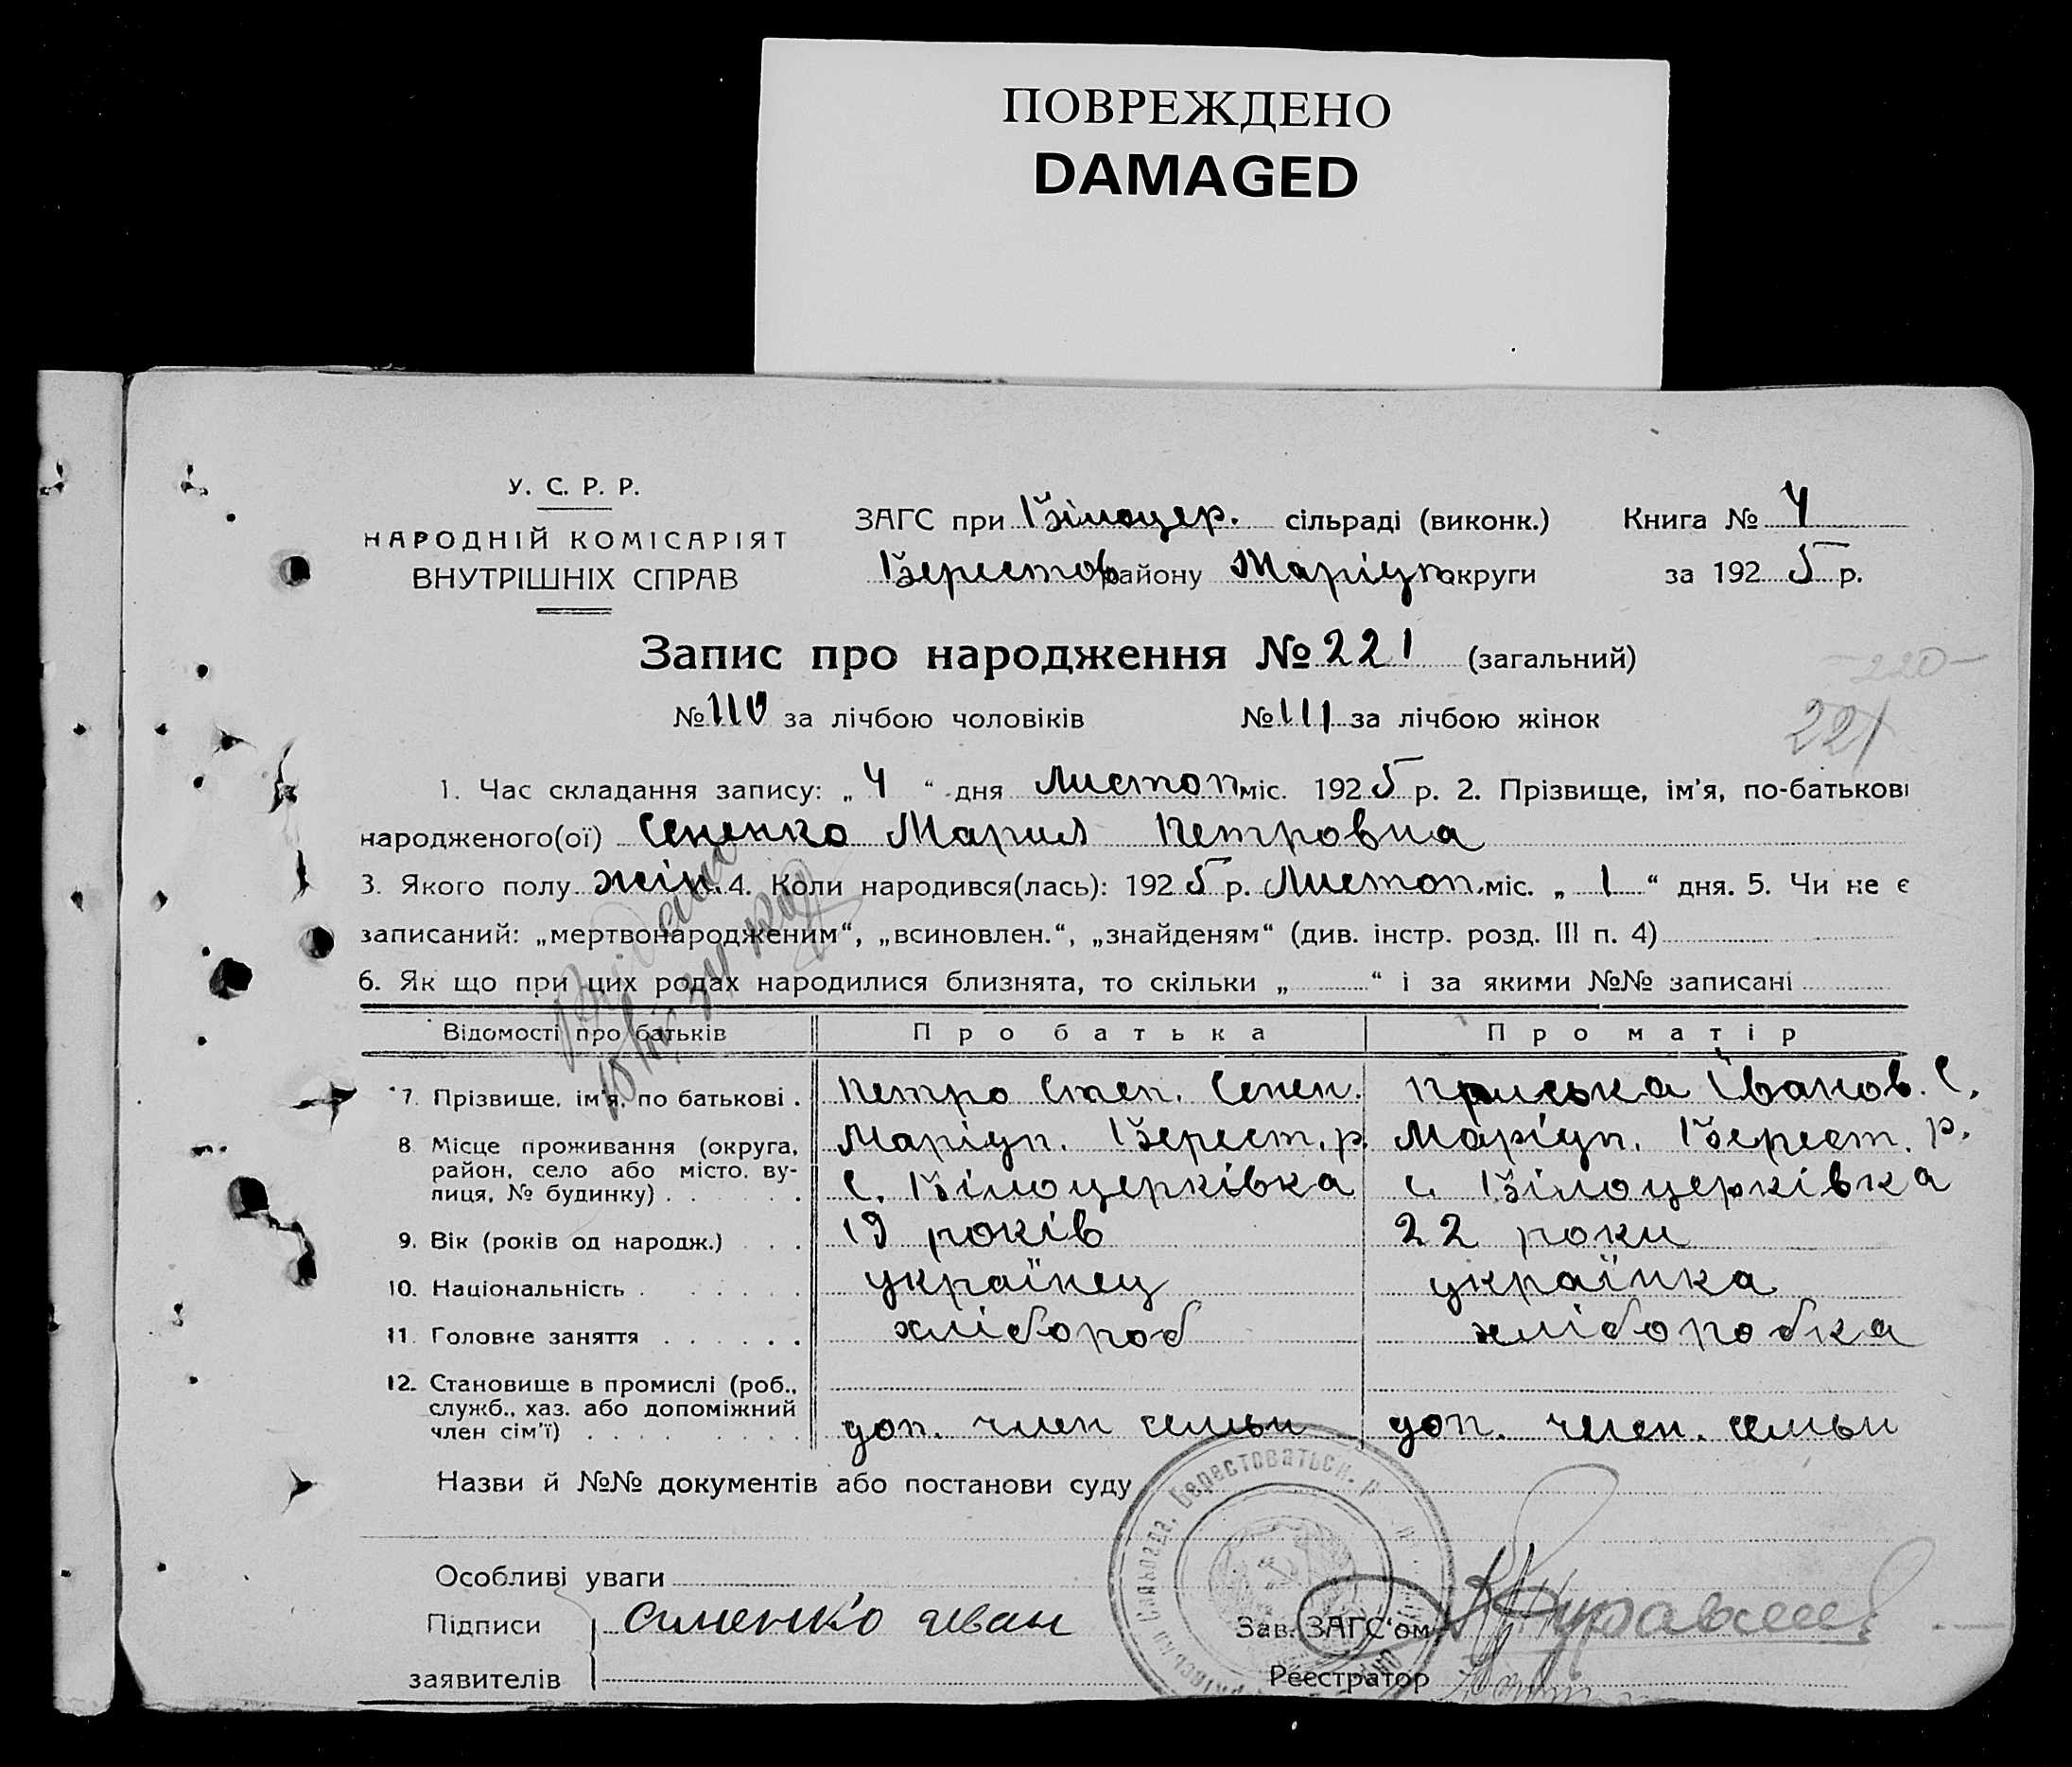 ПОВРЕЖДЕНО
DAMAGED
У. С. Р. Р.
НАРОДНІЙ КОМІСАРІЯТ
ВНУТРІШНІХ СПРАВ
ЗАГС при Білоцер. сільраді (виконк.) Книга № 4
Берестов району Маріуп. округи за 1925 р.
Запис про народження № 221 (загальний)
220
№ 110 за лічбою чоловіків № 111 за лічбою жінок
221
1. Час складання запису: „ 4 “ дня Листоп міс. 1925 р. 2. Прізвище, ім'я, по-батькові
народженого(ої) Сененко Мария Петровна
3. Якого полу жін. 4. Коли народився(лась): 1925 р. Листоп. міс. „ 1 “ дня. 5. Чи не є
записаний: „мертвонародженим“, „всиновлен.“, „знайденям“ (див. інстр. розд. III п. 4)
6. Як що при цих родах народилися близнята, то скільки „ “ і за якими №№ записані
Відомості про батьків Про батька Про матір
7. Прізвище, ім'я, по батькові . Петро Степ. Сенен. Приська Іванов. С.
8. Місце проживання (округа, район, село або місто, вулиця, № будинку) Маріуп. Берест. р. Маріуп. Берест. р.
С. Білоцерківка с. Білоцерківка
9. Вік (років од народж.) 19 років 22 роки
10. Національність українец українка
11. Головне заняття хлібороб хліборобка
12. Становище в промислі (роб., служб., хаз. або допоміжний член сім'ї) доп. член семьи доп. член. семьи
Назви й №№ документів або постанови суду
Берестоватськ. р.
Особливі уваги
Підписи Сименко Иван Зав. ЗАГС'ом
заявителів Реєстратор